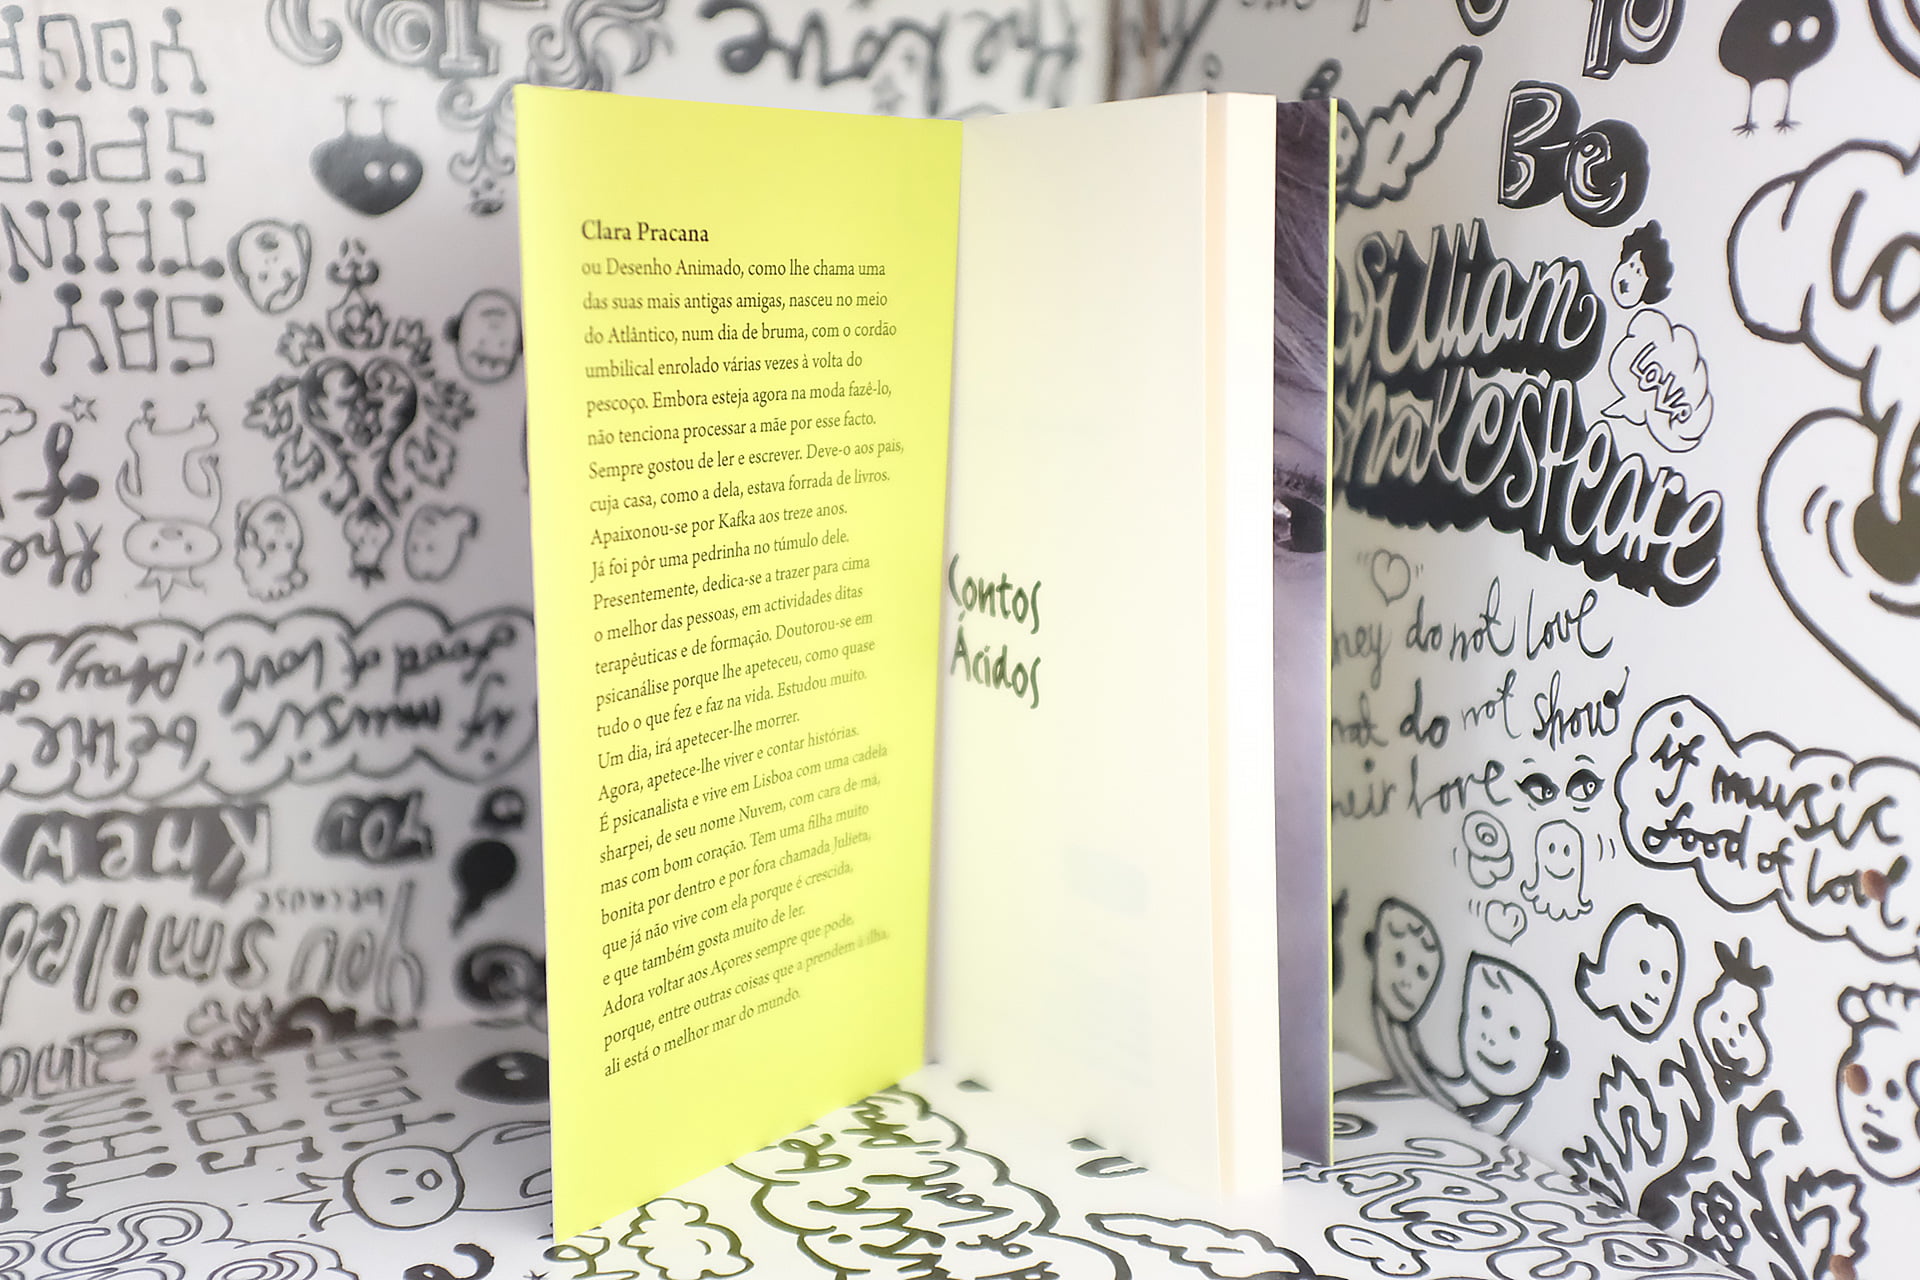 Clara Pracana
ou Desenho Animado, como lhe chama uma
das suas mais antigas amigas, nasceu no meio
do Atlântico, num dia de bruma, com o cordão
umbilical enrolado várias vezes à volta do
pescoço. Embora esteja agora na moda fazê-lo,
não tenciona processar a mãe por esse facto.
Sempre gostou de ler e escrever. Deve-o aos pais,
cuja casa, como a dela, estava forrada de livros.
Apaixonou-se por Kafka aos treze anos.
Já foi pôr uma pedrinha no túmulo dele.
Presentemente, dedica-se a trazer para cima
o melhor das pessoas, em actividades ditas
terapêuticas e de formação. Doutorou-se em
psicanálise porque lhe apeteceu, como quase
tudo o que fez e faz na vida. Estudou muito.
Um dia, irá apetecer-lhe morrer.
Agora, apetece-lhe viver e contar histórias.
É psicanalista e vive em Lisboa com uma cadela
sharpei, de seu nome Nuvem, com cara de má,
mas com bom coração. Tem uma filha muito
bonita por dentro e por fora chamada Julieta,
que já não vive com ela porque é crescida,
e que também gosta muito de ler.
Adora voltar aos Açores sempre que pode,
porque, entre outras coisas que a prendem à ilha,
ali está o melhor mar do mundo.
Contos
Ácidos
Be
William
Shakespeare
Love
they do not love
that do not show
their love
if music
food of love
YOUR
SPEAK
THIN
SAY
of
the
food of love play
if music be the
knew
you
because
you smiled